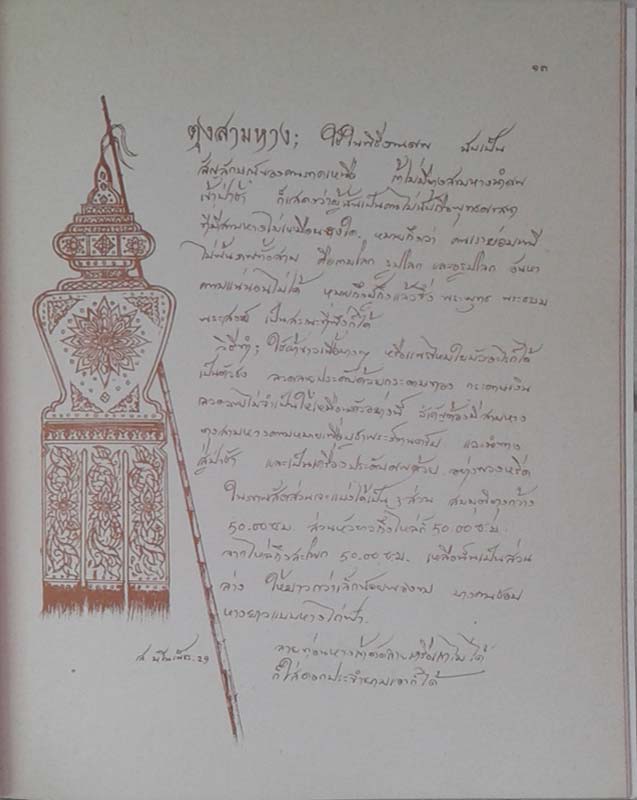 ๑๓
ตุงสามหาง; ใช้ในพิธีงานศพ นับเป็น
สัญลักษณ์ของคนภาคเหนือ ถ้าไม่มีตุงสามหางนำศพ
เข้าป่าช้า ก็แสดงว่าผู้นั้นเป็นคนไม่นับถือพุทธศาสนา
ที่มีสามหางไม่เหมือนธงใด. หมายถึงว่า คนเราย่อมหนี
ไม่พ้นภพทั้งสาม คือกามโลก รูปโลก และอรูปโลก อันหา
ความแน่นอนไม่ได้ หมายถึง แล้วซึ่ง พระพุทธ พระธรรม
พระสงฆ์ เป็นสรณะที่พึ่งก็ได้
วิธีทำ; ใช้ผ้าขาวเนื้อบางๆ หรือแพรไหม ก็ได้
เป็นตัวธง ลวดลายประดับด้วยกระดาษทอง กระดาษเงิน
ลวดลายไม่จำเป็นให้เหมือนตัวอย่างนี้ ต้องมีสามหาง
ตุงสามหางความหมายเพื่อบูชาพระรัตนตรัย และนำทาง
สู่ป่าช้า และเป็นเครื่องประดับศพด้วย อย่างพวงหรีด
ในทางสัดส่วนจะแบ่งได้เป็น ๓ ส่วน สมมุติตุงกว้าง
50.00 ซ.ม. ส่วนหัวยาวถึงไหล่ก็ 50.00 ซ.ม.
จากไหล่ถึงสะโพก 50.00 ซ.ม. เหลือนั้นเป็นส่วน
ล่าง ให้ยาวกว่าเล็กน้อยพองาม บางคนชอบ
หางยาวแบบหางไก่ฟ้า.
ลายท่อนหางถ้าตัดลายเครือเถาไม่ได้
ก็ใส่ดอกประจำยามเอาก็ได้